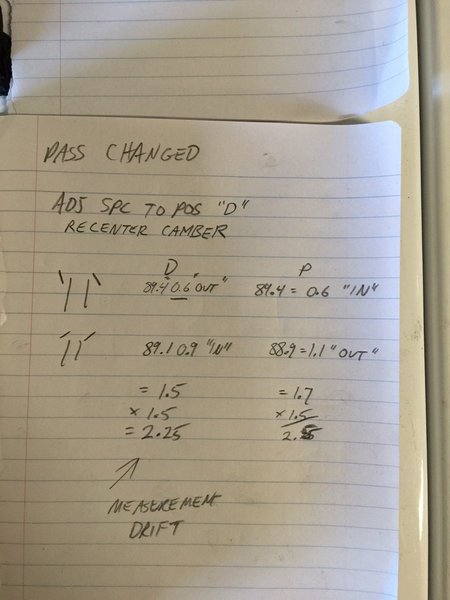 PASS CHANGED
ADJ SPC TO POS "D"
RECENTER CAMBER
D P
89.4 0.6 OUT" 89.4 = 0.6 "IN"
89.1 0.9 "IN" 88.9 = 1.1 "OUT"
= 1.5 = 1.7
× 1.5 × 1.5
= 2.25
MEASUREMENT
DRIFT